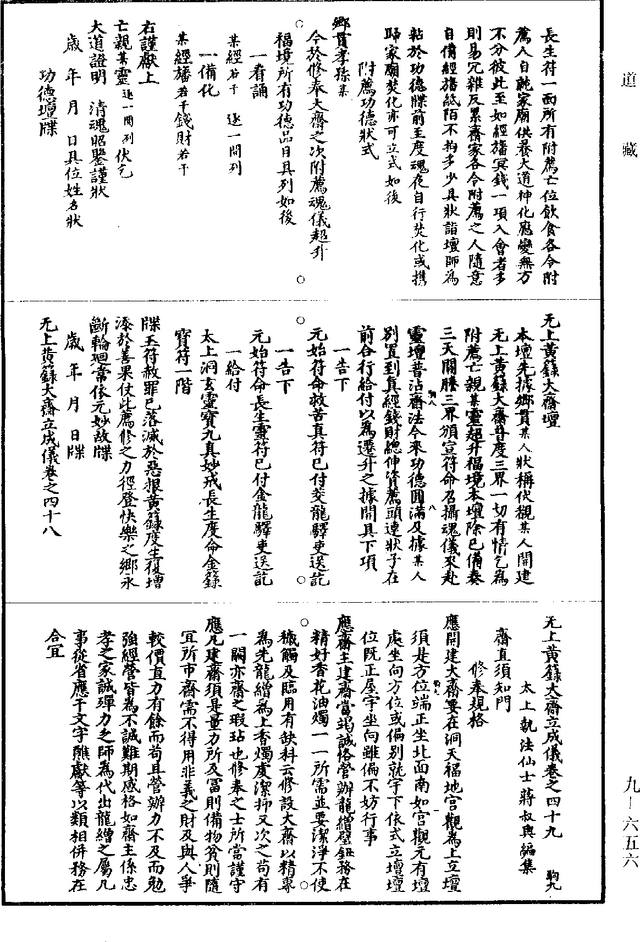 道藏
長生符一面所有附薦亡位飲食各令附
薦人自就家廟供養大道神化應變無方
不分彼此至如經旛冥錢一項入會者多
則易冗雜反累齋家各令附薦之人隨意
自備經旛紙陌不拘多少具狀詣壇師為
黏於功德牒前至度魂夜自行焚化或攜
歸家廟焚化亦可立式如後
附薦功德狀式
鄉貫孝孫某
今於修奉大齋之次附薦魂儀超升
福境所有功德品目具列如後
一看誦
某經若干 逐一開列
一備化
某經旛若干錢財若干
右謹獻上
亡親某靈逐一開列伏乞
大道證明 清魂昭鑒謹狀
歲 年 月 日具位姓名狀
功德壇牒
无上黃籙大齋壇
本壇先據鄉貫某人狀稱伏覩某人開建
无上黃籙大齋普度三界一切有情乞為
附薦亡親某靈超升福境本壇除已備奏
三天關牒三界頒宣符命召攝魂儀來赴
靈壇普沾齋法今來功德圓滿及據某人
別置到真經錢財總伸資薦頭連狀子在
前合行給付以為遷升之據開具下項
一告下
元始符命救苦真符已付交龍驛吏送訖
一告下
元始符命長生靈符已付金龍驛吏送訖
一給付
太上洞玄靈寶九真妙戒長生度命金籙
寶符一階
牒玉符赦罪已落滅於惡根黃籙度生復增
添於善果仗此薦修之力徑登快樂之鄉永
斷輪迴常依元妙故牒
歲 年 月 日牒
无上黃籙大齋立成儀卷之四十八
无上黃籙大齋立成儀卷之四十九 駒九
太上執法仙士蔣叔輿編集
齋直須知門
修奉規格
應開建大齋要在洞天福地宮觀為上立壇
須是方位端正坐北面南如宮觀元有壇
處坐向方位或偏別就宇下依式立壇壇
位既正屋宇坐向雖偏不妨行事
應齋主建齋當竭誠恪營辦龍繒璧鈕務在
精好香花油燭一一所需並要潔淨不使
穢觸及臨用有缺科云修設大齋以精專
為先龍繒為上香燭虔潔抑又次之苟有
一闕亦齋之瑕玷也修奉之士所當謹守
應凡建齋須是量力所及富則備物貧則隨
宜所市齋需不得用非義之財及與人爭
較價直力有餘而苟且營辦力不及而勉
強經營皆為不誠難期感格如齋主係忠
孝之家誠殫力乏師為代出龍繒之屬凡
事從省應干文字醮獻等以類相併務在
合宜
九—六五六